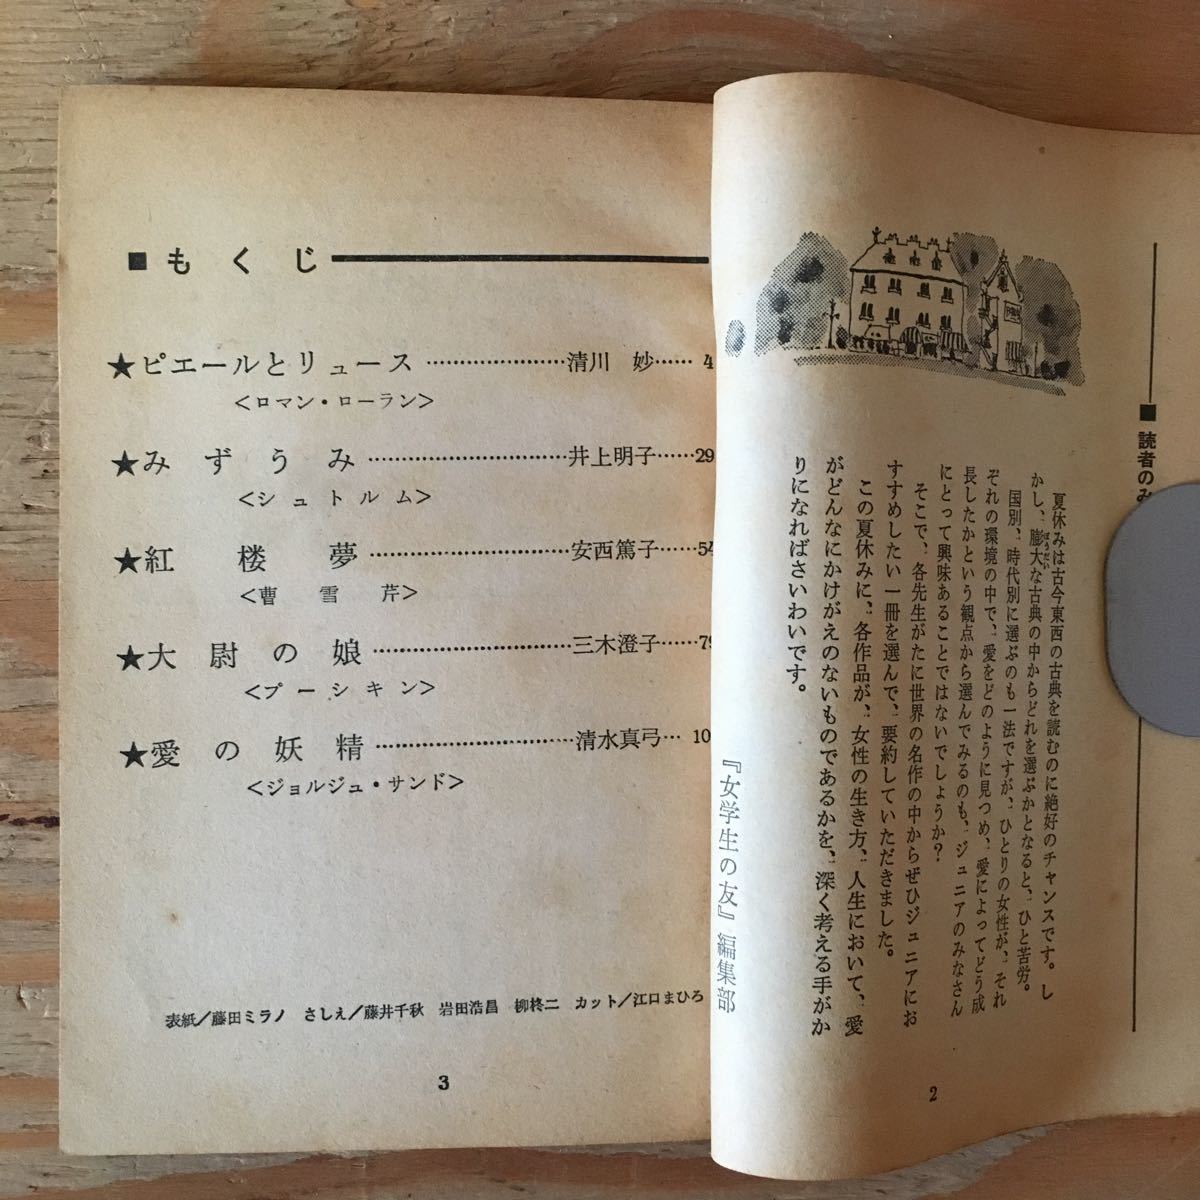 ■もくじ
★ピエールとリュース……………………清川　妙……4
＜ロマン・ローラン＞
★みずうみ……………………………井上明子……29
＜シュトルム＞
★紅楼夢……………………………安西篤子……54
＜曹雪芹＞
★大尉の娘……………………………三木澄子……79
＜プーシキン＞
★愛の妖精……………………………清水真弓…10
＜ジョルジュ・サンド＞
表紙／藤田ミラノ　さしえ／藤井千秋　岩田浩昌　柳柊二　カット／江口まひろ
3
■読者のみ
夏休みは古今東西の古典を読むのに絶好のチャンスです。し
かし、膨大な古典の中からどれを選ぶかとなると、ひと苦労。
ぼうだい
国別、時代別に選ぶのも一法ですが、ひとりの女性が、それ
ぞれの環境の中で、愛をどのように見つめ、愛によってどう成
長したかという観点から選んでみるのも、ジュニアのみなさん
にとって興味あることではないでしょうか？
そこで、各先生がたに世界の名作の中からぜひジュニアにお
すすめしたい一冊を選んで、要約していただきました。
この夏休みに、各作品が、女性の生き方、人生において、愛
がどんなにかけがえのないものであるかを、深く考える手がか
りになればさいわいです。
『女学生の友』編集部
2